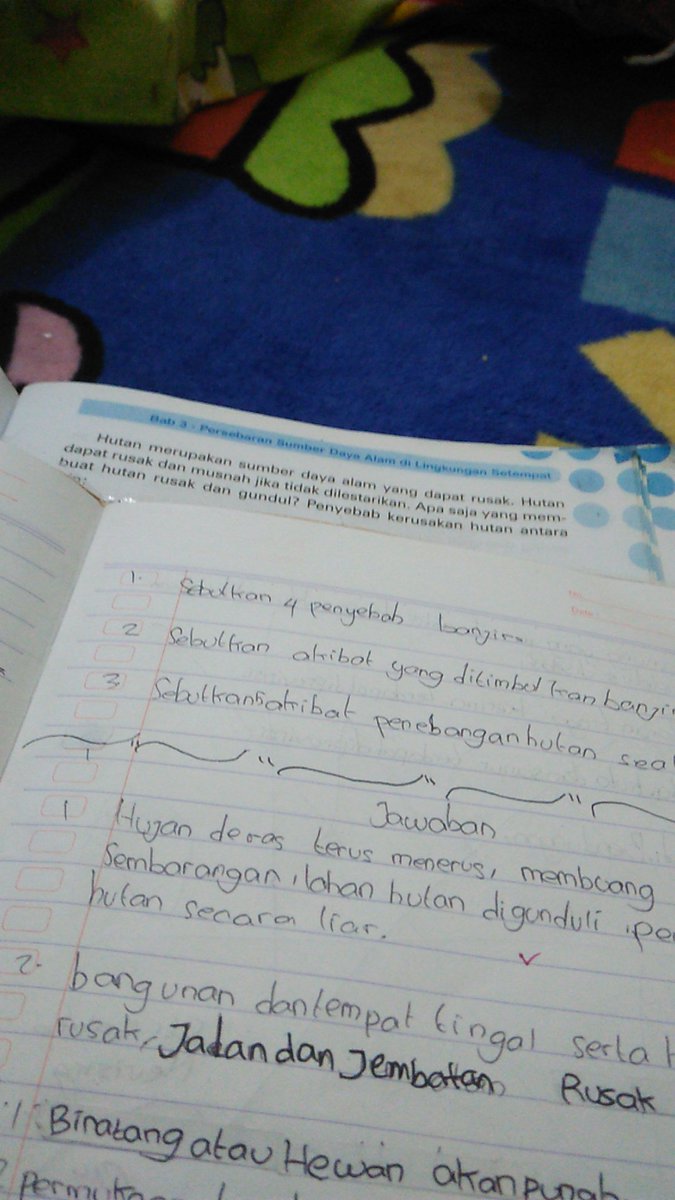 Bab 3 - Persebaran Sumber Daya Alam di Lingkungan Setempat
Hutan merupakan sumber daya alam yang dapat rusak. Hutan
dapat rusak dan musnah jika tidak dilestarikan. Apa saja yang mem-
buat hutan rusak dan gundul? Penyebab kerusakan hutan antara
No.
Date
1. Sebutkan 4 penyebab banjir.
2 Sebutkan akibat yang ditimbulkan banji
3 Sebutkan 5 akibat penebangan hutan sea
Jawaban
1 Hujan deras terus menerus, membuang
Sembarangan, lahan hutan digunduli, pe
hutan secara liar.
2. bangunan dan tempat tingal serta
rusak, Jalan dan Jembatan Rusak
Binatang atau Hewan akan punah